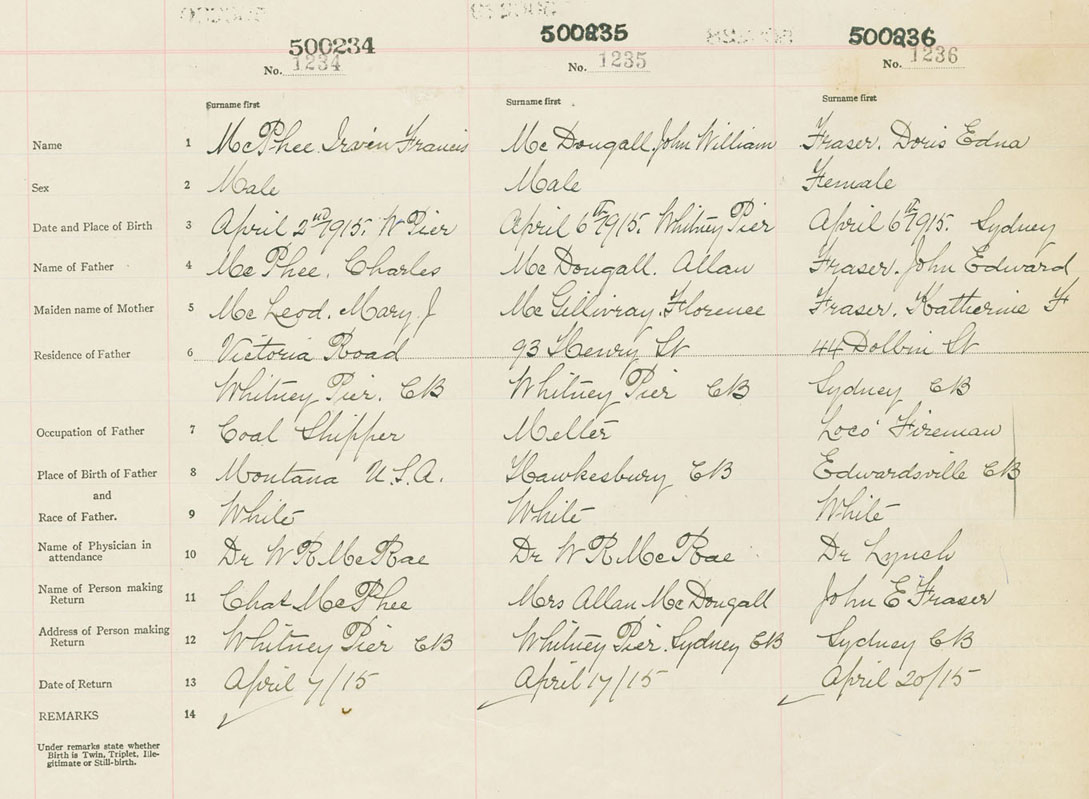 500234 500235 500236
No. 1234 No. 1235 No. 1236
Surname first Surname first Surname first
Name 1 McPhee Irvin Francis Mc Dougall, John William Fraser, Doris Edna
Sex 2 Male Male Female
Date and Place of Birth 3 April 2nd 1915. W Pier April 6th 1915. Whitney Pier April 6th 1915. Sydney
Name of Father 4 Mc Phee, Charles Mc Dougall, Allan Fraser, John Edward
Maiden name of Mother 5 Mc Leod, Mary J Mc Gillivray, Florence Fraser, Katherine F
Residence of Father 6 Victoria Road 93 Henry St 44 Dolbin St
Whitney Pier. CB Whitney Pier CB Sydney CB
Occupation of Father 7 Coal Shipper Melter Loco' Fireman
Place of Birth of Father 8 Montana U.S.A. Hawkesbury CB Edwardsville CB
and
Race of Father. 9 White White White
Name of Physician in
attendance 10 Dr W R McRae Dr W R McRae Dr Lynch
Name of Person making
Return 11 Chas McPhee Mrs Allan McDougall John E Fraser
Address of Person making
Return 12 Whitney Pier CB Whitney Pier, Sydney CB Sydney CB
Date of Return 13 April 7/15 April 17/15 April 20/15
REMARKS 14
Under remarks state whether
Birth is Twin, Triplet, Ille-
gitimate or Still-birth.